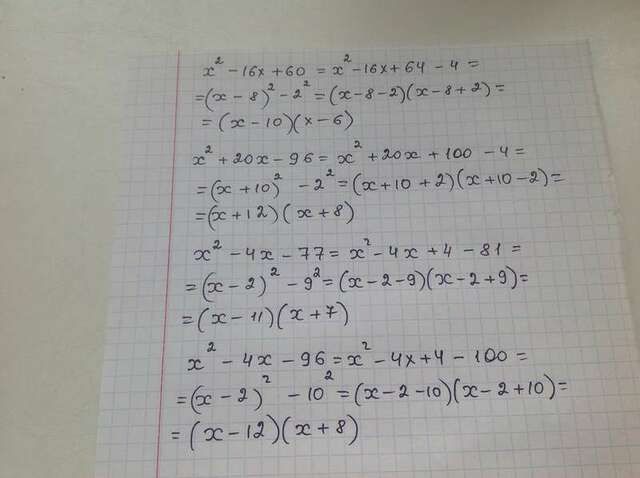 x² - 16x + 60 = x² - 16x + 64 - 4 =
= (x - 8)² - 2² = (x - 8 - 2)(x - 8 + 2) =
= (x - 10)(x - 6)
x² + 20x - 96 = x² + 20x + 100 - 4 =
= (x + 10)² - 2² = (x + 10 + 2)(x + 10 - 2) =
= (x + 12)(x + 8)
x² - 4x - 77 = x² - 4x + 4 - 81 =
= (x - 2)² - 9² = (x - 2 - 9)(x - 2 + 9) =
= (x - 11)(x + 7)
x² - 4x - 96 = x² - 4x + 4 - 100 =
= (x - 2)² - 10² = (x - 2 - 10)(x - 2 + 10) =
= (x - 12)(x + 8)